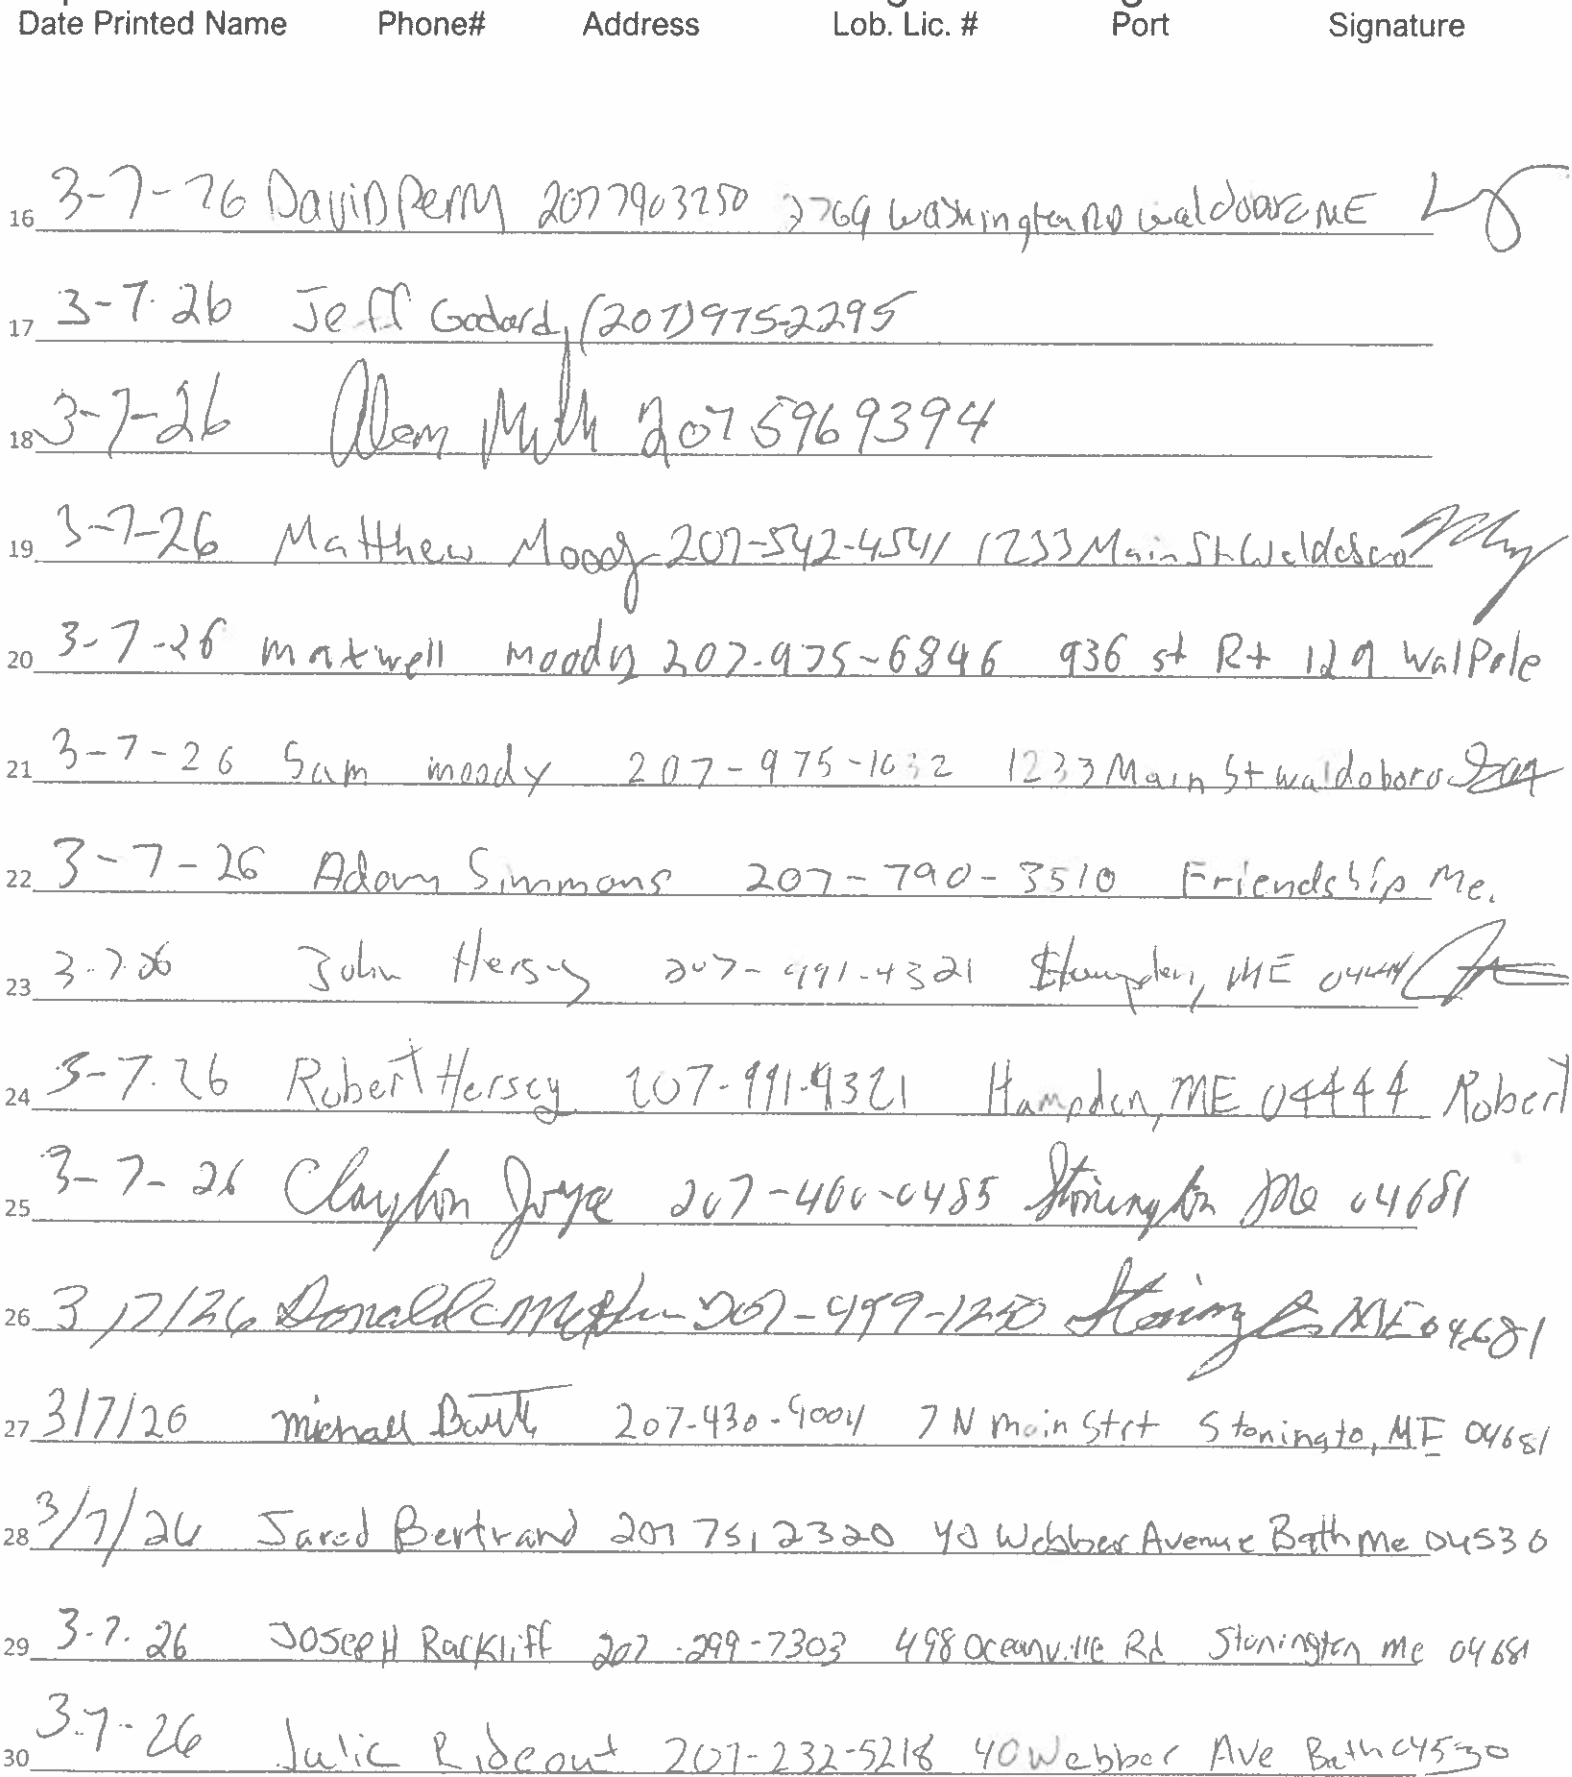 Date Printed Name Phone# Address Lob. Lic. # Port Signature
16 3-7-26 David Perry 2077903250 2769 Washington RD waldoboro ME
17 3-7-26 Jeff Godard (207)975-2295
18 3-7-26 2075969394
19 3-7-26 Matthew Moody 207-542-4541 1233 Main St
20 3-7-26 maxwell moody 207-975-6846 936 st Rt 129 WalPole
21 3-7-26 Sam moody 207-975-1032 1233 Main St waldoboro
22 3-7-26 Adam Simmons 207-790-3510 Friendship Me.
23 3-7-26 John Hersey 207-991-4321 Hampden, ME 04444
24 3-7-26 Robert Hersey 207-991-9321 Hampden, ME 04444 Robert
25 3-7-26 Clayton Joyce 207-460-0485 Stonington Me 04681
26 3/7/26 Donald 207-499-1250 Stonington ME 04681
27 3/7/26 207-430-9004 7 N main Strt Stoningto, ME 04681
28 3/7/26 Jared Bertrand 207 751 2320 40 Webber Avenue Bath Me 04530
29 3-7-26 JOSEPH RacKliff 207-299-7303 498 Oceanville Rd Stonington me 04681
30 3-7-26 Julie Rideout 207-232-5218 40 Webber Ave Bath 04530